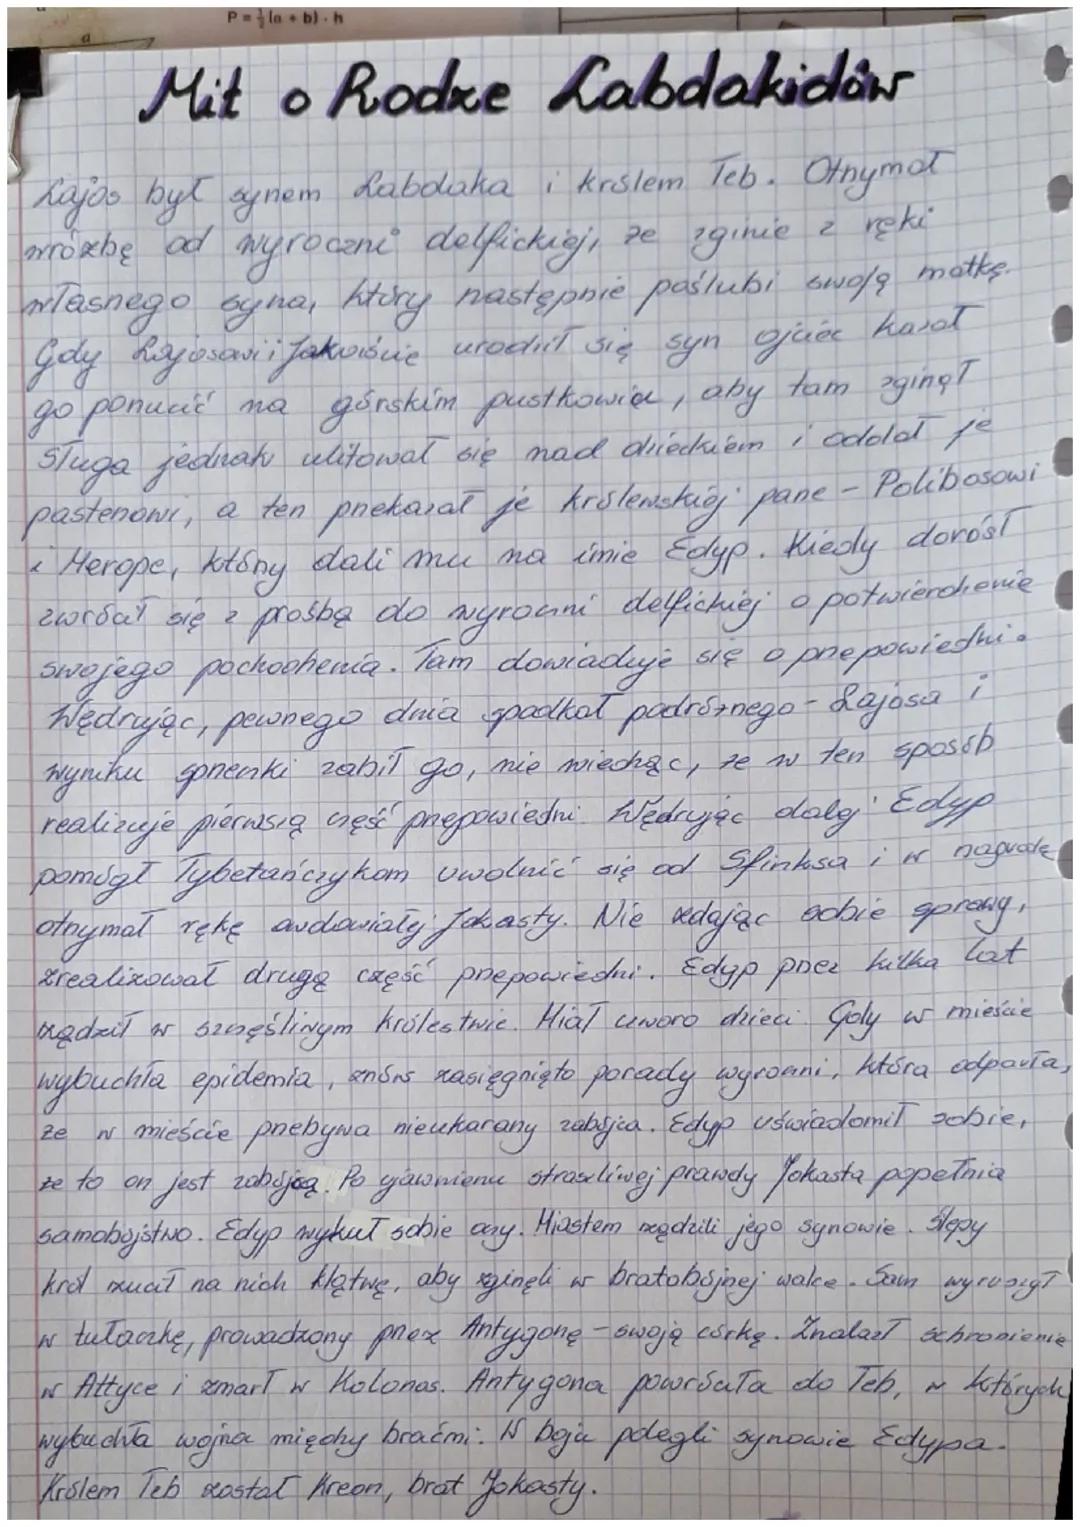 P = ½(a + b) · h
a
Mit o Rodze Labdakidów
Lajos był synem Labdaka i królem Teb. Otrzymał
wróżbę od wyroczni delfickiej, że zginie z ręki
własnego syna, który następnie poślubi swoją matkę.
Gdy Lajosowi i Jokaście urodził się syn ojciec kazał
go porzucić na górskim pustkowiu, aby tam zginął
Sługa jednak ulitował się nad dzieckiem i oddał je
pasterzowi, a ten przekazał je królewskiej parze - Polibosowi
i Merope, którzy dali mu na imie Edyp. Kiedy dorósł
zwrócał się z prośbą do wyroczni delfickiej o potwierdzenie
swojego pochodzenia. Tam dowiaduje się o przepowiedni.
Wędrując, pewnego dnia spodkał podróżnego - Lajosa i
wyniku sprzeczki zabił go, nie wiedząc, że w ten sposób
realizuje pierwszą część przepowiedni. Wędrując dalej Edyp
pomógł Tybetańczykom uwolnić się od Sfinksa i w nagrodę
otrzymał rękę owdowiałej Jokasty. Nie zdając sobie sprawy,
zrealizował drugą część przepowiedni. Edyp przez kilka lat
rządził w szczęśliwym królestwie. Miał czworo dzieci. Gdy w mieście
wybuchła epidemia, znów zasięgnięto porady wyroczni, która odparła,
że w mieście przebywa nieukarany zabójca. Edyp uświadomił sobie,
że to on jest zabójcą. Po ujawnieniu straszliwej prawdy Jokasta popełnia
samobójstwo. Edyp wykuł sobie oczy. Miastem rządzili jego synowie. Ślepy
król rzucił na nich klątwę, aby zginęli w bratobójnej walce. Sam wyruszył
w tułaczkę, prowadzony przez Antygonę - swoją córkę. Znalazł schronienie
w Attyce i zmarł w Kolonas. Antygona powróciła do Teb, w których
wybuchła wojna między braćmi. W boju polegli synowie Edypa.
Królem Teb został Kreon, brat Jokasty.